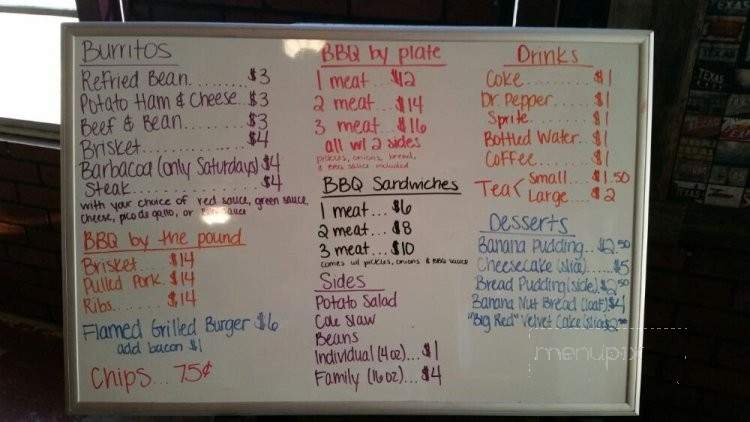 Burritos
Refried Bean........$3
Potato Ham & Cheese..$3
Beef & Bean........$3
Brisket..............$4
Barbacoa (only Saturdays) $4
Steak................$4
with your choice of red sauce, green sauce,
cheese, pico de gallo, or BBQ sauce
BBQ by the pound
Brisket... $14
Pulled Pork. $14
Ribs..... $14
Flamed Grilled Burger $6
add bacon $1
Chips... 75¢
BBQ by plate
1 meat...$12
2 meat...$14
3 meat...$16
all w/ 2 sides
pickles, onions, bread,
& BBQ sauce included
BBQ Sandwiches
1 meat... $6
2 meat... $8
3 meat... $10
comes w/ pickles, onions & BBQ sauce
Sides
Potato Salad
Cole Slaw
Beans
Individual (4oz)...$1
Family (16oz)...$4
Drinks
Coke..........$1
Dr. Pepper......$1
Sprite.........$1
Bottled Water..$1
Coffee........$1
Tea< Small....$1.50
Large....$2
Desserts
Banana Pudding...$2.50
Cheesecake (slice)......$5
Bread Pudding (side).$2.50
Banana Nut Bread (loaf) $4
"Big Red" Velvet Cake (slice)
menupix
TEXAS
TEXAS